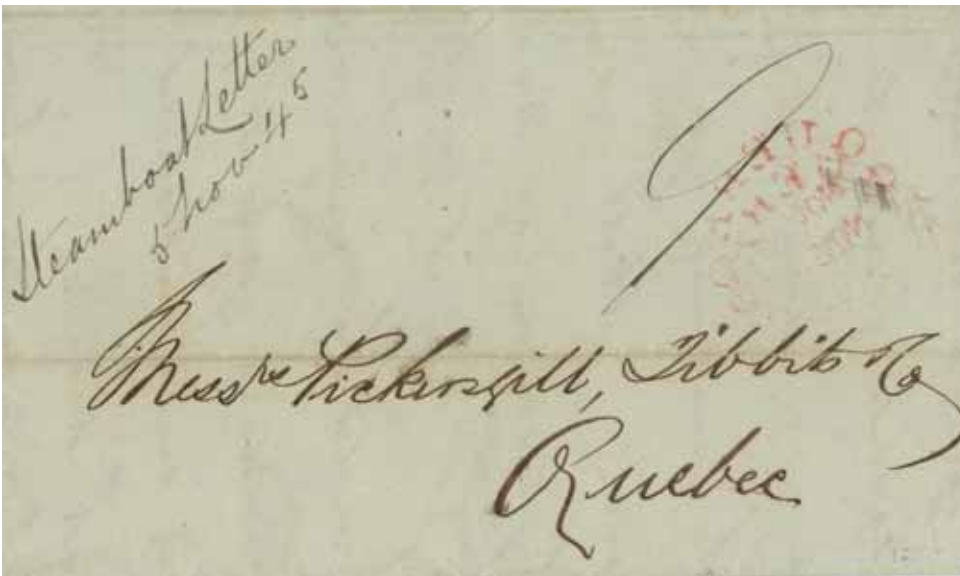 Steamboat Letter
5 Nov 45
9
Messrs Pickersgill, Tibbits & Co
Quebec